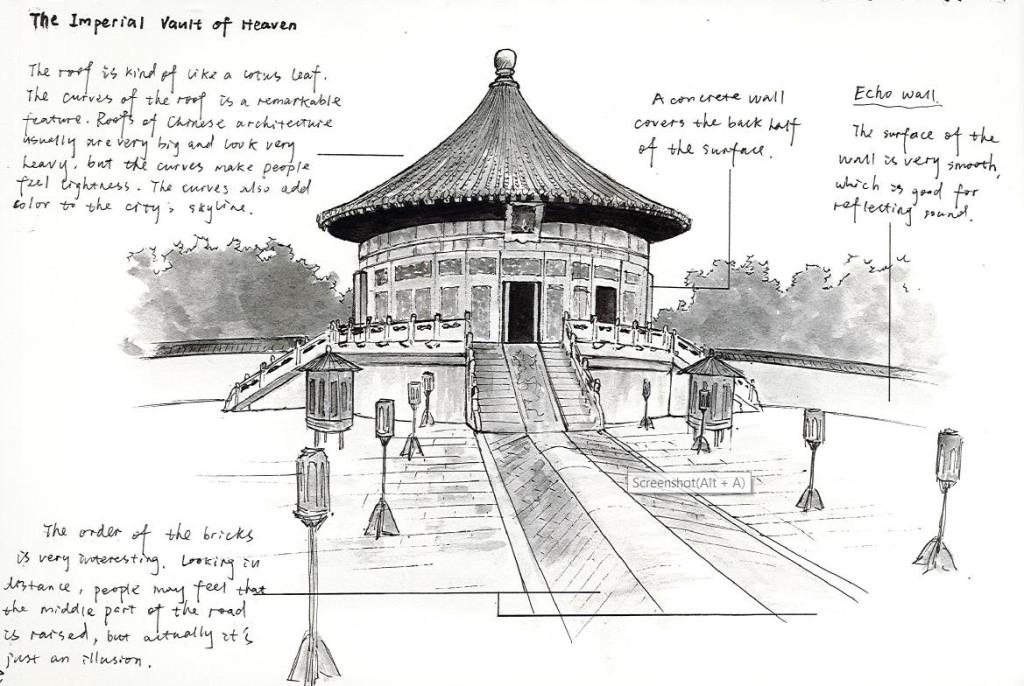 The Imperial Vault of Heaven
The roof is kind of like a lotus leaf.
The curves of the roof is a remarkable
feature. Roofs of Chinese architecture
usually are very big and look very
heavy, but the curves make people
feel lightness. The curves also add
color to the city's skyline.
A concrete wall
covers the back half
of the surface.
Echo wall.
The surface of the
wall is very smooth,
which is good for
reflecting sound.
Screenshot(Alt + A)
The order of the bricks
is very interesting. Looking in
distance, people may feel that
the middle part of the road
is raised, but actually it's
just an illusion.